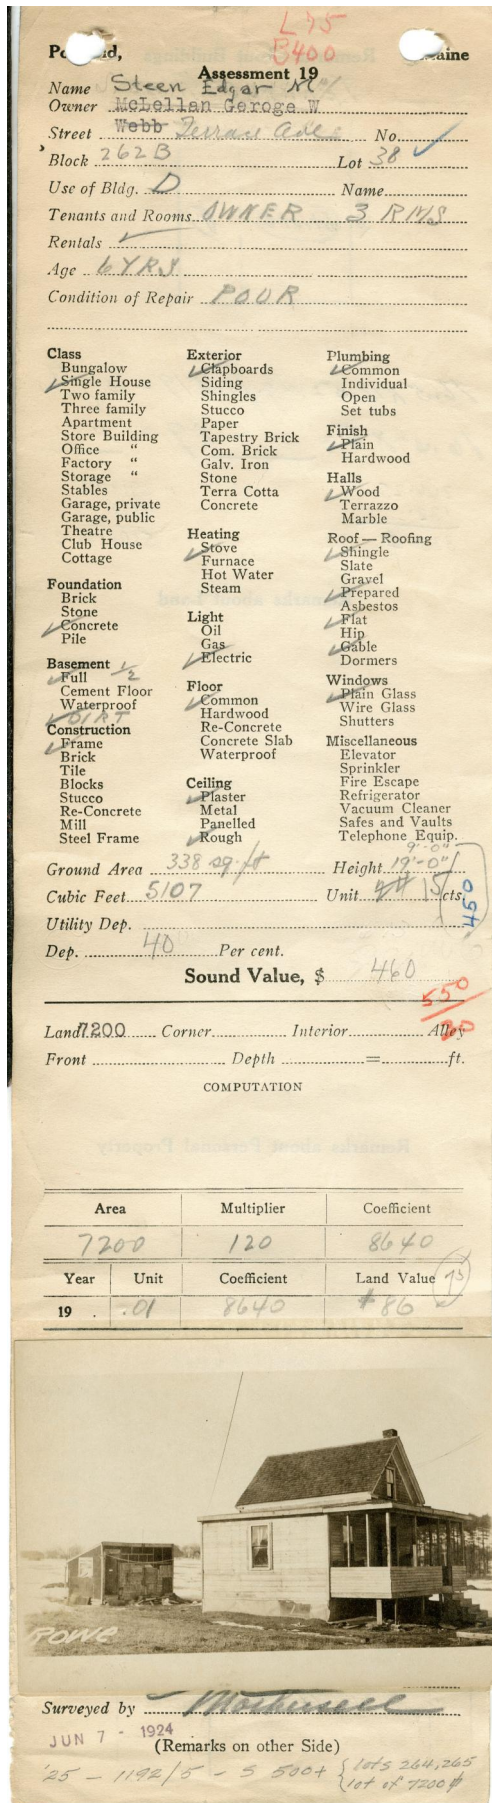 L 75
B 400
Po nd, aine
Assessment 19
Name Steen Edgar M
Owner McLellan Geroge W
Street Webb Terrace Ave No.
Block 262B Lot 38
Use of Bldg. D Name
Tenants and Rooms OWNER 3 RMS
Rentals
Age 6 YRS
Condition of Repair POOR
Class
Bungalow
Single House
Two family
Three family
Apartment
Store Building
Office "
Factory "
Storage "
Stables
Garage, private
Garage, public
Theatre
Club House
Cottage
Foundation
Brick
Stone
Concrete
Pile
Basement 1/2
Full
Cement Floor
Waterproof
DIRT
Construction
Frame
Brick
Tile
Blocks
Stucco
Re-Concrete
Mill
Steel Frame
Exterior
Clapboards
Siding
Shingles
Stucco
Paper
Tapestry Brick
Com. Brick
Galv. Iron
Stone
Terra Cotta
Concrete
Heating
Stove
Furnace
Hot Water
Steam
Light
Oil
Gas
Electric
Floor
Common
Hardwood
Re-Concrete
Concrete Slab
Waterproof
Ceiling
Plaster
Metal
Panelled
Rough
Plumbing
Common
Individual
Open
Set tubs
Finish
Plain
Hardwood
Halls
Wood
Terrazzo
Marble
Roof — Roofing
Shingle
Slate
Gravel
Prepared
Asbestos
Flat
Hip
Gable
Dormers
Windows
Plain Glass
Wire Glass
Shutters
Miscellaneous
Elevator
Sprinkler
Fire Escape
Refrigerator
Vacuum Cleaner
Safes and Vaults
Telephone Equip.
9'-0"
Ground Area 338 sq. ft Height 19'-0"
Cubic Feet 5107 Unit 15 cts.
450
Utility Dep.
Dep. 40 Per cent.
Sound Value, $ 460
550
20
Land 7200 Corner Interior Alley
Front Depth = ft.
COMPUTATION
Area Multiplier Coefficient
7200 120 8640
Year Unit Coefficient Land Value 75
19 . .01 8640 $86
ROWE
Surveyed by
JUN 7 - 1924
(Remarks on other Side)
'25 - 1192/5 - S 500+ { lots 264,265
lot of 7200 #